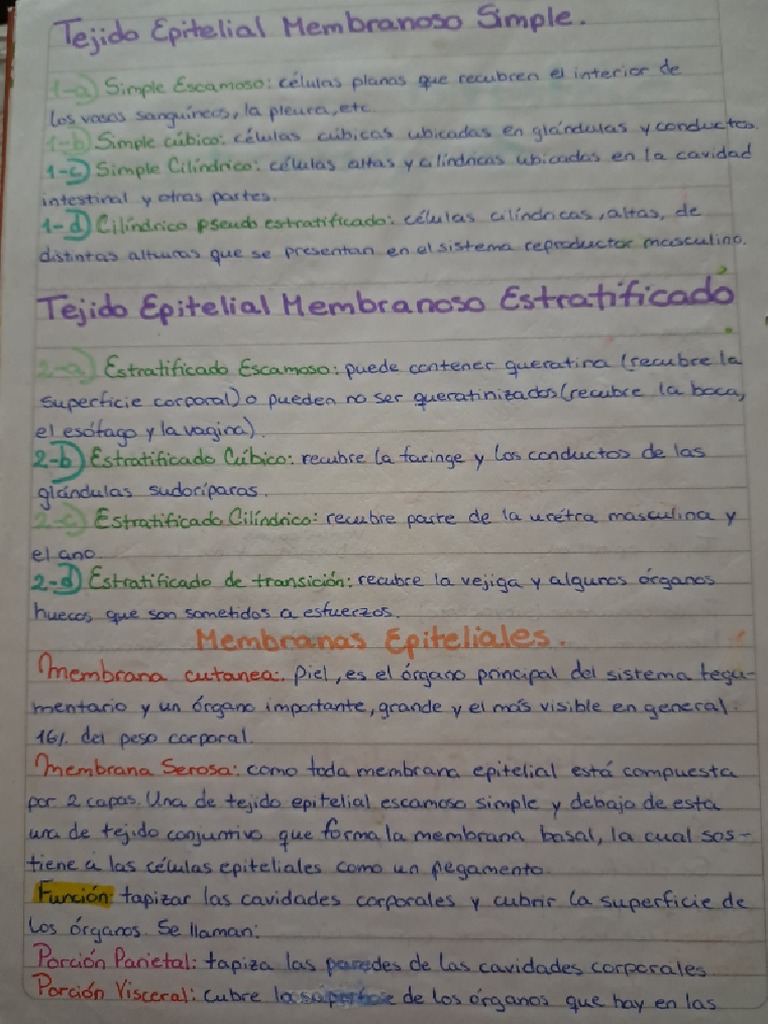 Tejido Epitelial Membranoso Simple.
1-a) Simple Escamoso: células planas que recubren el interior de
los vasos sanguíneos, la pleura, etc.
1-b) Simple cúbico: células cúbicas ubicadas en glándulas y conductos.
1-c) Simple Cilíndrico: células altas y cilíndricas ubicadas en la cavidad
intestinal y otras partes.
1-d) Cilíndrico pseudo estratificado: células cilíndricas, altas, de
distintas alturas que se presentan en el sistema reproductor masculino.
Tejido Epitelial Membranoso Estratificado
2-a) Estratificado Escamoso: puede contener queratina (recubre la
superficie corporal) o pueden no ser queratinizados (recubre la boca,
el esófago y la vagina).
2-b) Estratificado Cúbico: recubre la faringe y los conductos de las
glándulas sudoríparas.
2-c) Estratificado Cilíndrico: recubre parte de la uretra masculina y
el ano.
2-d) Estratificado de transición: recubre la vejiga y algunos órganos
huecos que son sometidos a esfuerzos.
Membranas Epiteliales.
Membrana cutanea: Piel, es el órgano principal del sistema tegu-
mentario y un órgano importante, grande y el más visible en general.
16% del peso corporal.
Membrana Serosa: como toda membrana epitelial está compuesta
por 2 capas. Una de tejido epitelial escamoso simple y debajo de esta
una de tejido conjuntivo que forma la membrana basal, la cual sos-
tiene a las células epiteliales como un pegamento.
Función: tapizar las cavidades corporales y cubrir la superficie de
los órganos. Se llaman:
Porción Parietal: tapiza las paredes de las cavidades corporales
Porción Visceral: cubre la superficie de los órganos que hay en las